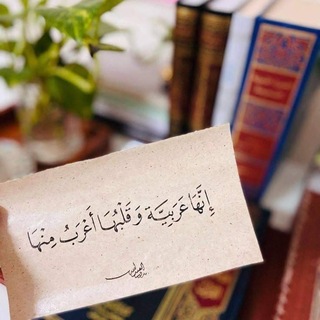 إِنَّهَا عَرَبِيَّة وَقَلْبُهَا أَغْرَبُ مِنْهَا